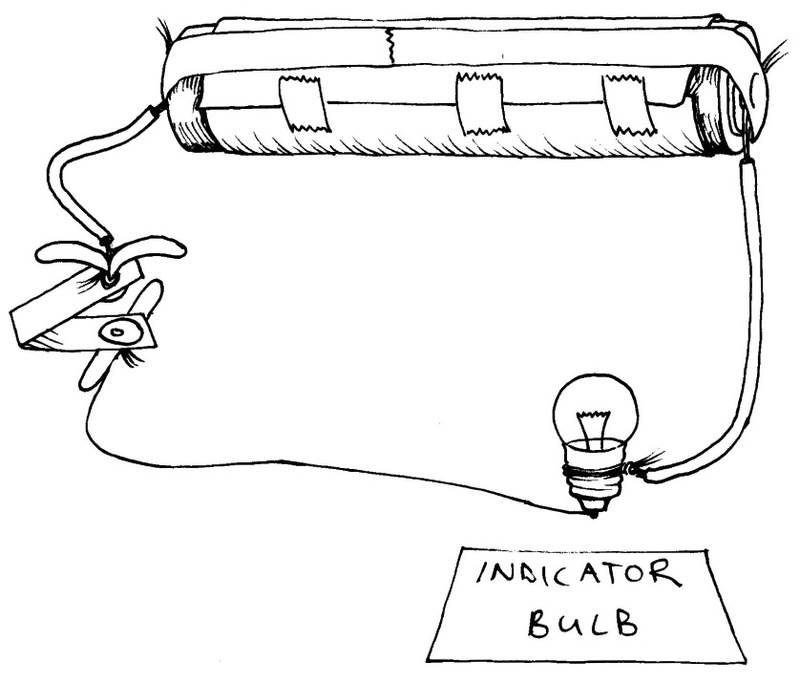 INDICATOR
BULB